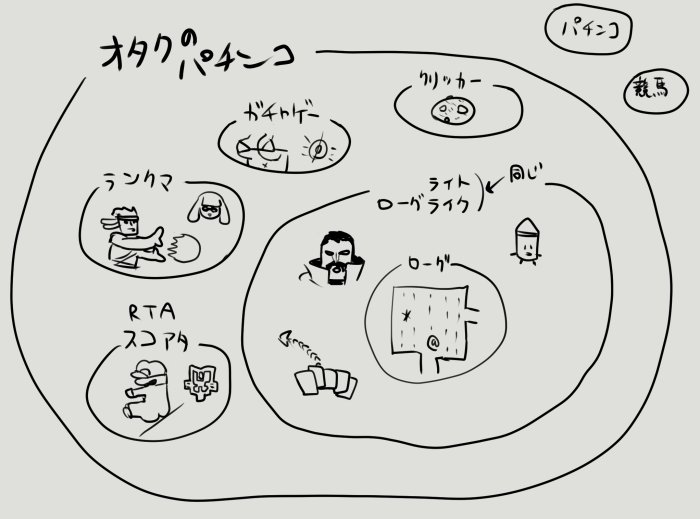 オタクの
パチンコ
パチンコ
競馬
クリッカー
ガチャゲー
ランクマ
ライト
ローグライク
同じ
ローグ
RTA
スコアタ